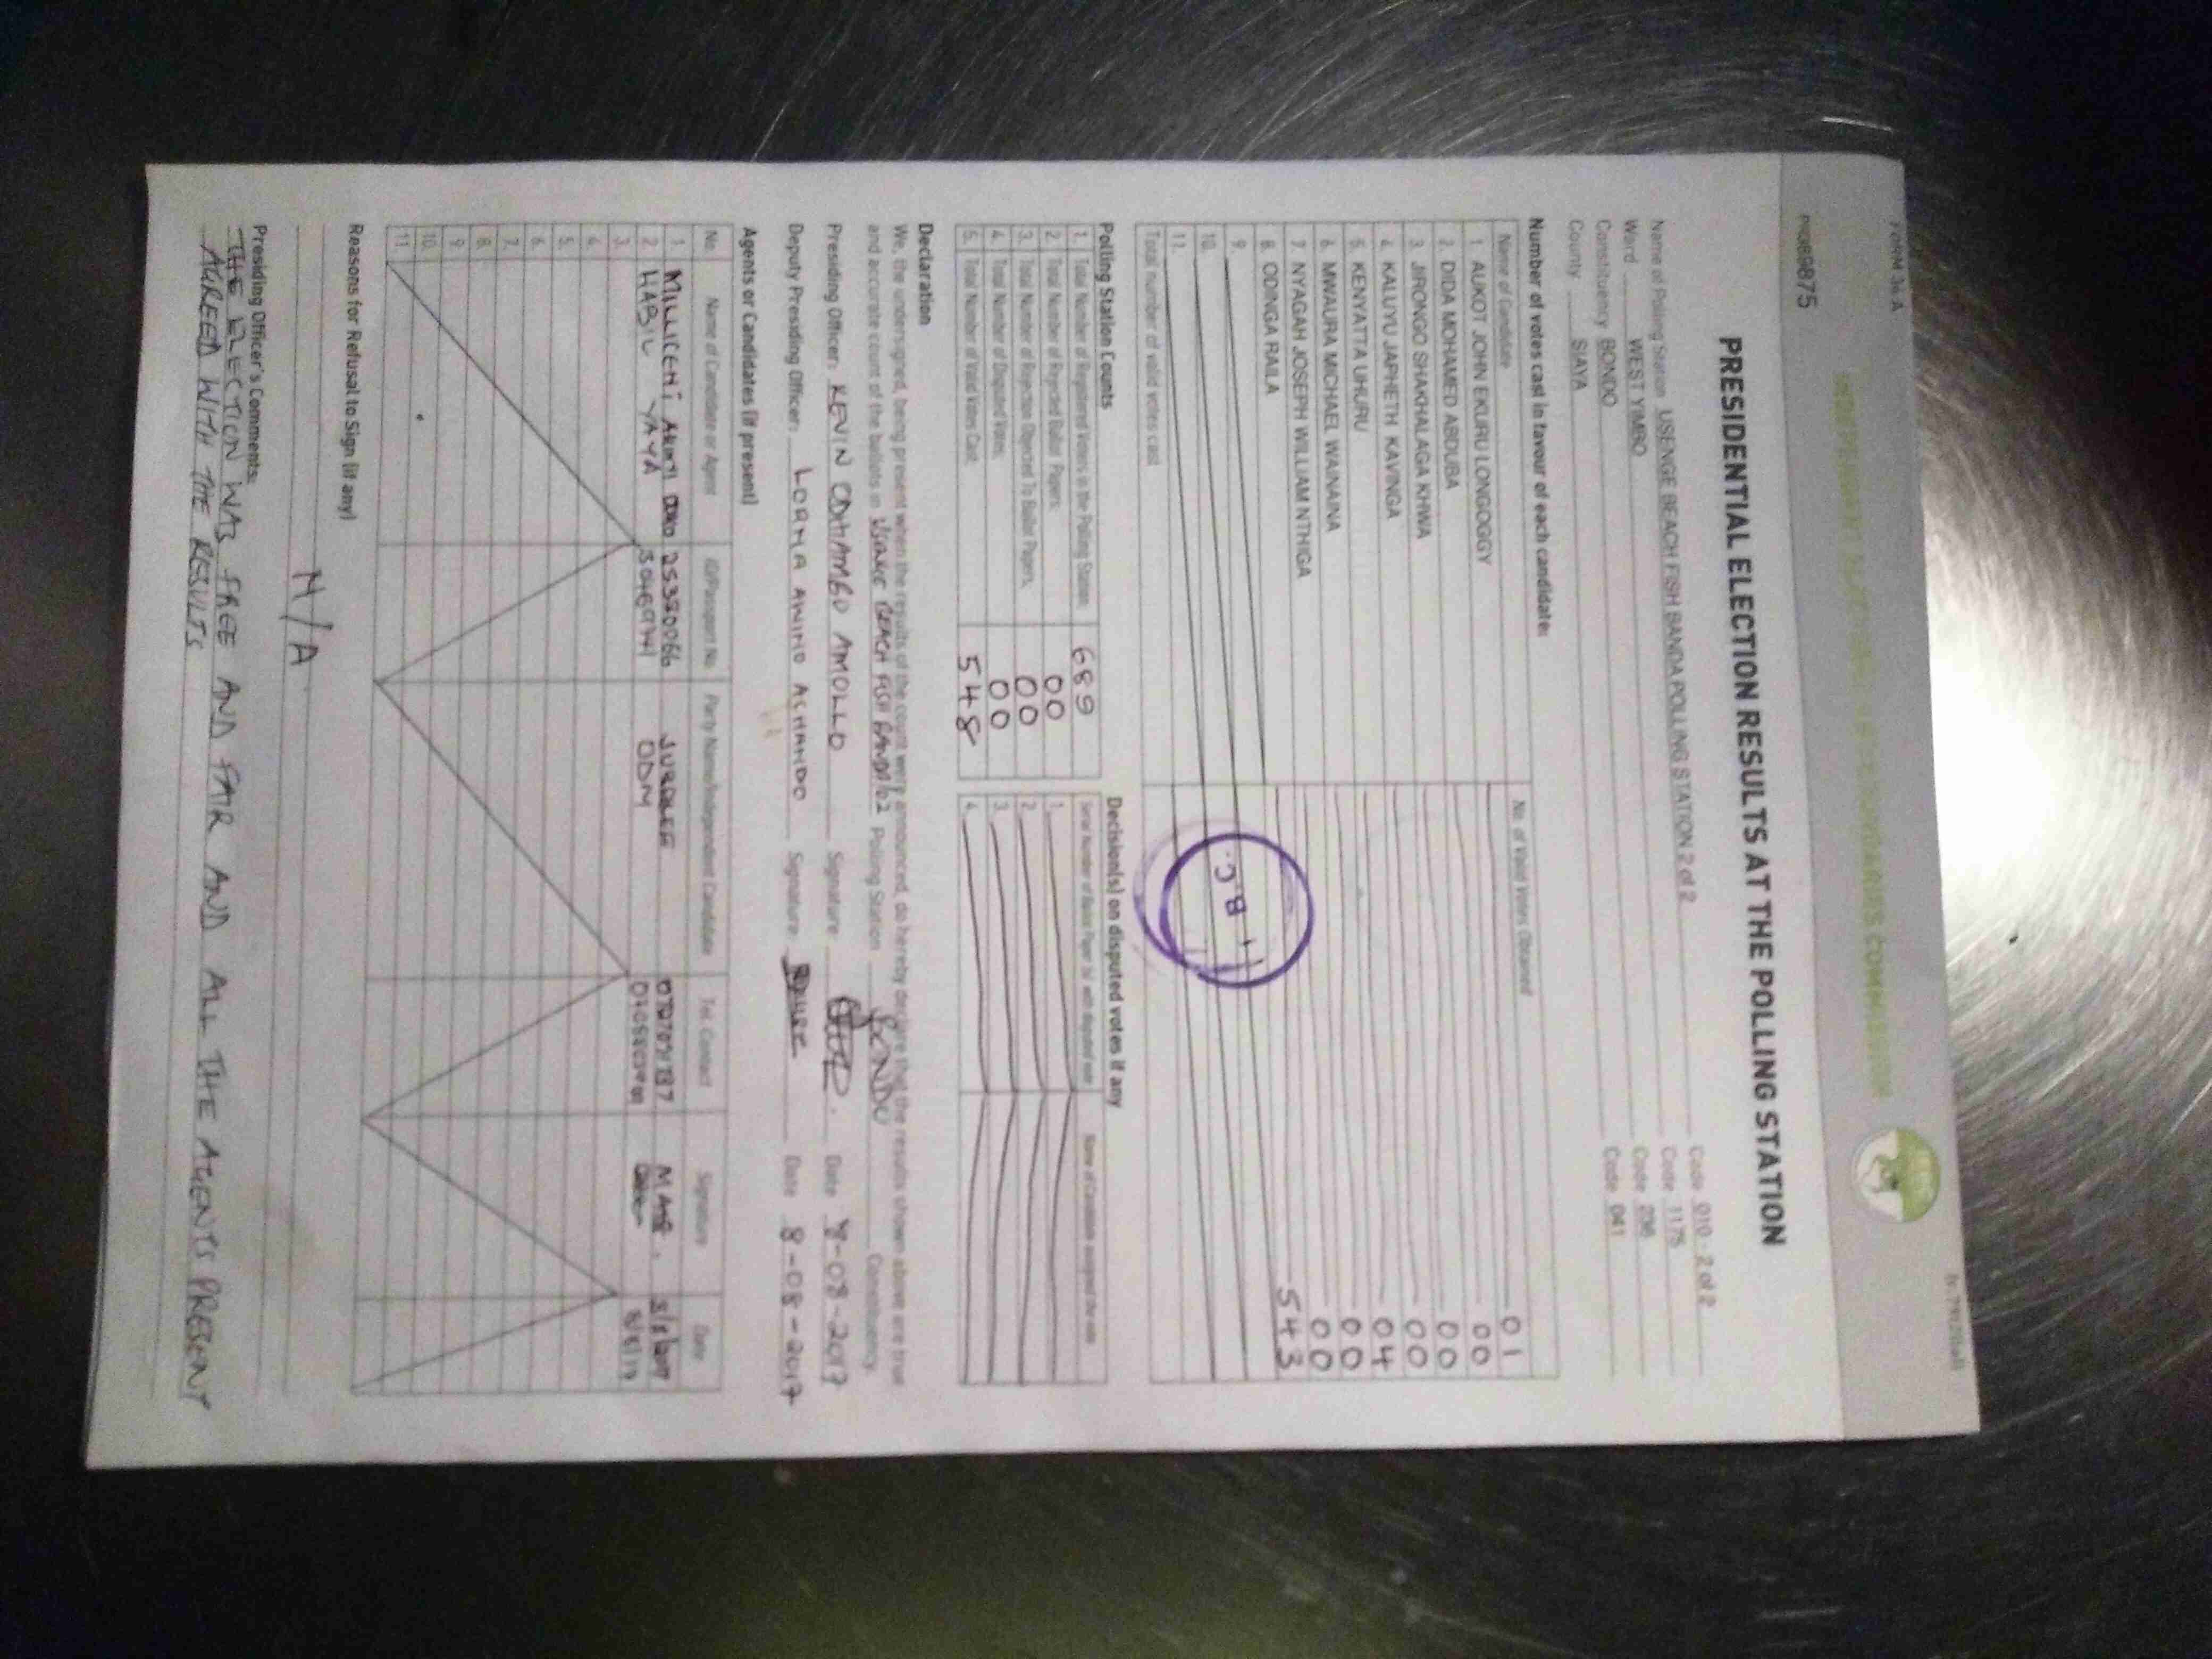 FORM 34 A
PRESIDENTIAL ELECTION RESULTS AT THE POLLING STATION
Name of Polling Station USENGE BEACH FISH BANDA POLLING STATION 2 of 2 Code 010 - 2 of 2
Ward WEST YIMBO Code 1175
Constituency BONDO Code 206
County SIAYA Code 041
Number of votes cast in favour of each candidate:
Name of Candidate No. of Valid Votes Obtained
1. AUKOT JOHN EKURU LONGOGGY 01
2. DIDA MOHAMED ABDUBA 00
3. JIRONGO SHAKHALAGA KHWA 00
4. KALUYU JAPHETH KAVINGA 00
5. KENYATTA UHURU 04
6. MWAURA MICHAEL WAINAINA 00
7. NYAGAH JOSEPH WILLIAM NTHIGA 00
8. ODINGA RAILA 543
9.
10.
11.
Total number of valid votes cast
Polling Station Counts
1. Total Number of Registered Voters in the Polling Station 689
2. Total Number of Rejected Ballot Papers 00
3. Total Number of Rejection Objected To Ballot Papers 00
4. Total Number of Disputed Votes 00
5. Total Number of Valid Votes Cast 548
Decision(s) on disputed votes if any
1.
2.
3.
4.
Declaration
We, the undersigned, being present when the results of the count were announced, do hereby declare that the results shown above are true
and accurate count of the ballots in USENGE BEACH FISH BANDA/02 Polling Station BONDO Constituency.
Presiding Officer: KEVIN AMOLLO Signature Date 8-08-2017
Deputy Presiding Officer: LORNA AWINO ACHANDO Signature Date 8-08-2017
Agents or Candidates (if present)
No. Name of Candidate or Agent ID/Passport No. Party Name/Independent Candidate Tel. Contact Signature Date
1. MILLICENT AKINYI 25380066 JUBILEE 8/8/2017
2. HABIL YAYA ODM
3.
4.
5.
6.
7.
8.
9.
10.
11.
Reasons for Refusal to Sign (if any)
N/A
Presiding Officer's Comments:
THE ELECTION WAS FREE AND FAIR AND ALL THE AGENTS PRESENT
AGREED WITH THE RESULTS